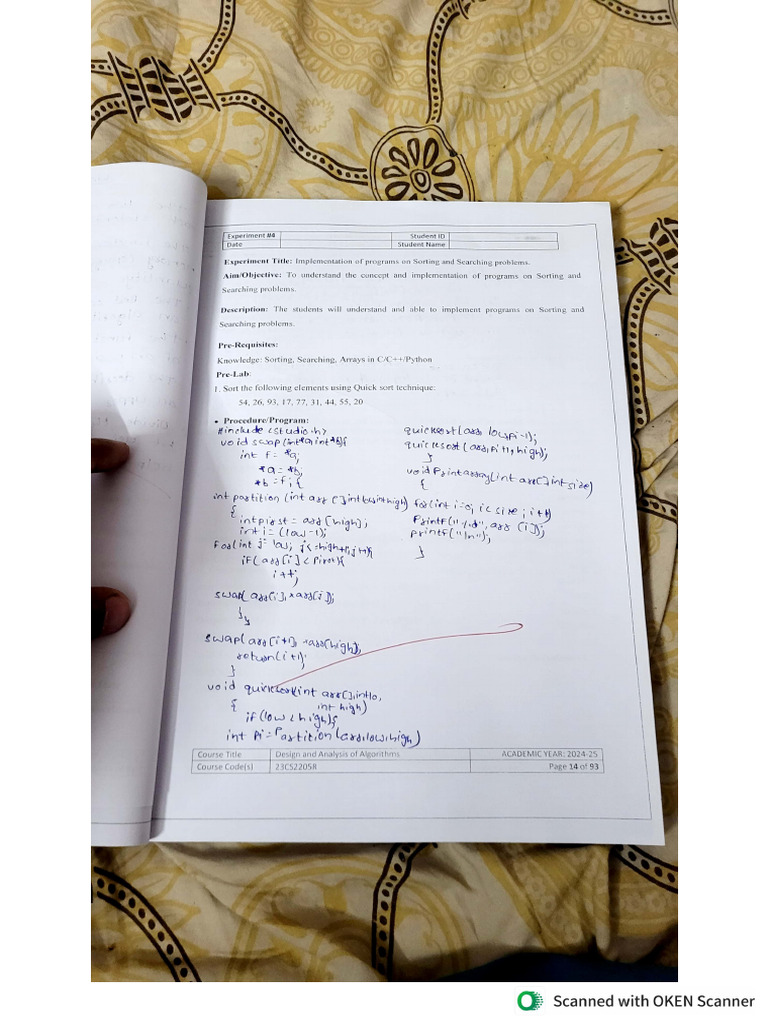 Experiment #4
Student ID
Date
Student Name
Experiment Title: Implementation of programs on Sorting and Searching problems.
Aim/Objective: To understand the concept and implementation of programs on Sorting and
Searching problems.
Description: The students will understand and able to implement programs on Sorting and
Searching problems.
Pre-Requisites:
Knowledge: Sorting, Searching, Arrays in C/C++/Python
Pre-Lab:
1. Sort the following elements using Quick sort technique:
54, 26, 93, 17, 77, 31, 44, 55, 20
• Procedure/Program:
#include <studio.h>
void swap(int*a,int*b){
int f = *a;
*a = *b,
*b = f; {
int partition (int arr[] int low int high)
{
int pirst = arr[high];
int i = (low-1);
For(int j= low; j<=high+1; j++){
if(arr[i] < pirot){
i++;
swap(arr[i], *arr[i]);
}}
swap(arr[i+1], *arr[high],
return(i+1);
}
void quicksort(int arr[],int lo,
{ int high)
if(low<high){
int Pi = Partition(arr,low,high)
quicksort(arr low,pi-1);
quicksort(arr,pi+1,high);
}
void Printarray(int arr[] int size)
{
for(int i=0; i<size; i++)
Printf("%d", arr[i]);
printf("\n");
}
Course Title
Design and Analysis of Algorithms
ACADEMIC YEAR: 2024-25
Course Code(s)
23CS2205R
Page 14 of 93
Scanned with OKEN Scanner